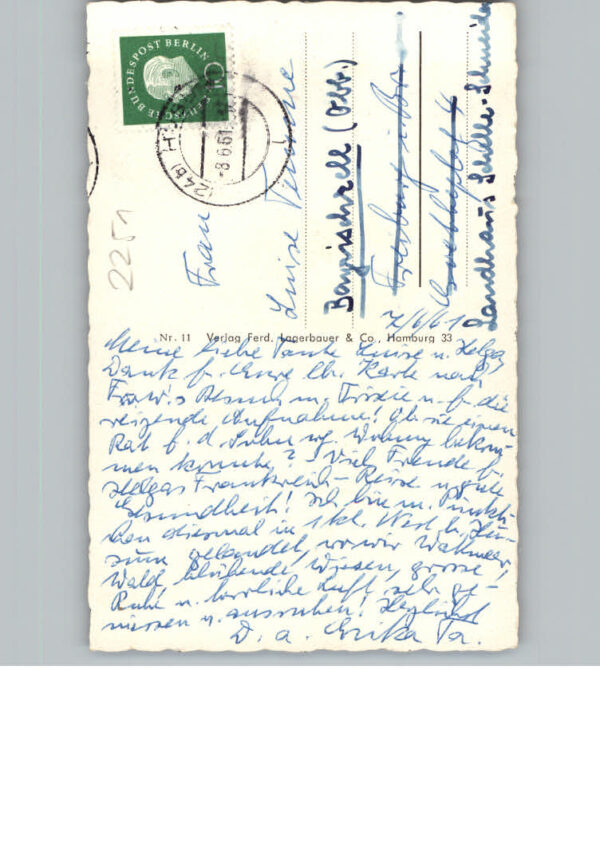 DEUTSCHE BUNDESPOST BERLIN
(24b)
-8.6.61
2251
Frau
Luise
Bayrischzell (Obb.)
Freiburg i/Br
Landhaus Schiller-Schneider
7/6/61
Nr. 11 Verlag Ferd. Lagerbauer & Co., Hamburg 33
Meine liebe Tante Luise u. Helga,
Dank f. Eure lb. Karte nach
Besuch u. f. die
reizende Aufnahme! Ob sie einen
Rat f. d. wg. Wohng bekom-
men konnte? Viel Freude f.
Helgas Frankreich-Reise u gute
Gesundheit! Ich bin m.
diesmal in
gelandet, wo wir
Wald, blühende Wiesen, grosse
Ruhe u. herrliche Luft sehr ge-
niessen u. ausruhen! Herzlichst
D. a. Erika